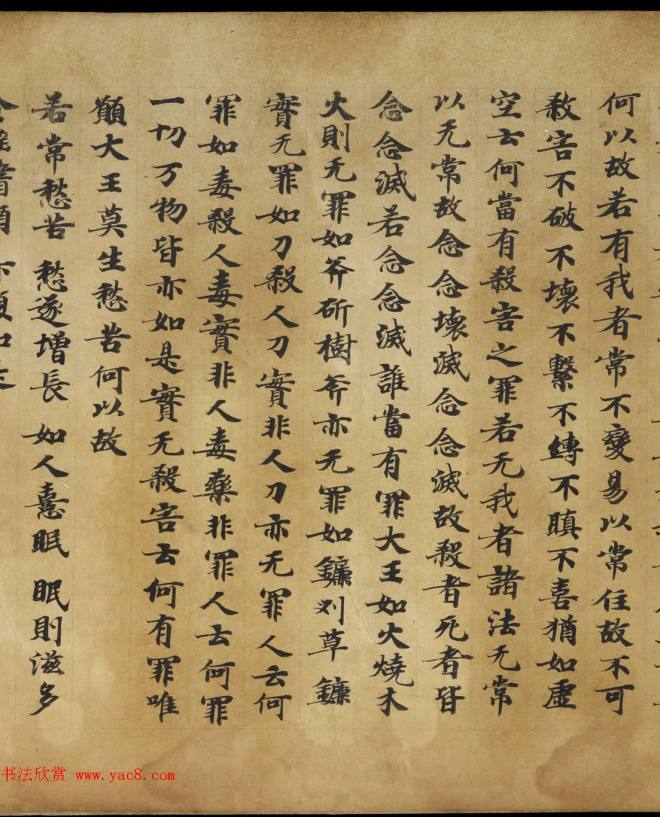 何以故若有我者常不變易以常住故不可
敘害不破不壞不繫不縛不瞋不喜猶如虛
空云何當有殺害之罪若无我者諸法无常
以无常故念念壞滅念念滅故殺者死者皆
念念滅若念念滅誰當有罪大王如火燒木
火則无罪如斧斫樹斧亦无罪如鐮刈草鐮
實无罪如刀殺人刀實非人刀亦无罪人云何
罪如毒殺人毒實非人毒藥非罪人云何罪
一切万物皆亦如是實无殺害云何有罪唯
願大王莫生愁苦何以故
若常愁苦 愁遂增長 如人憙眠 眠則滋多
书法欣赏 www.yac8.com